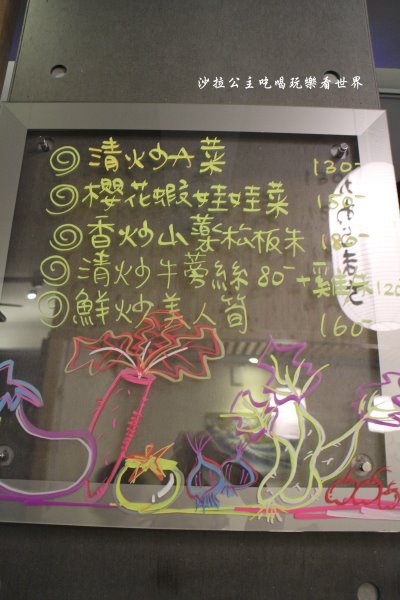 沙拉公主吃喝玩樂看世界
清炒A菜 130-
櫻花蝦娃娃菜 150-
香炒山藥松板朱 180-
清炒牛蒡絲 80-+雞絲120
鮮炒美人筍 160-